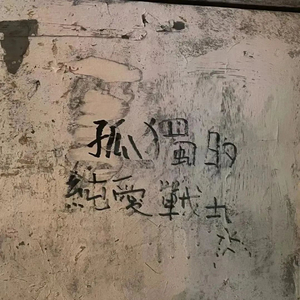 孤獨的
純愛戰士